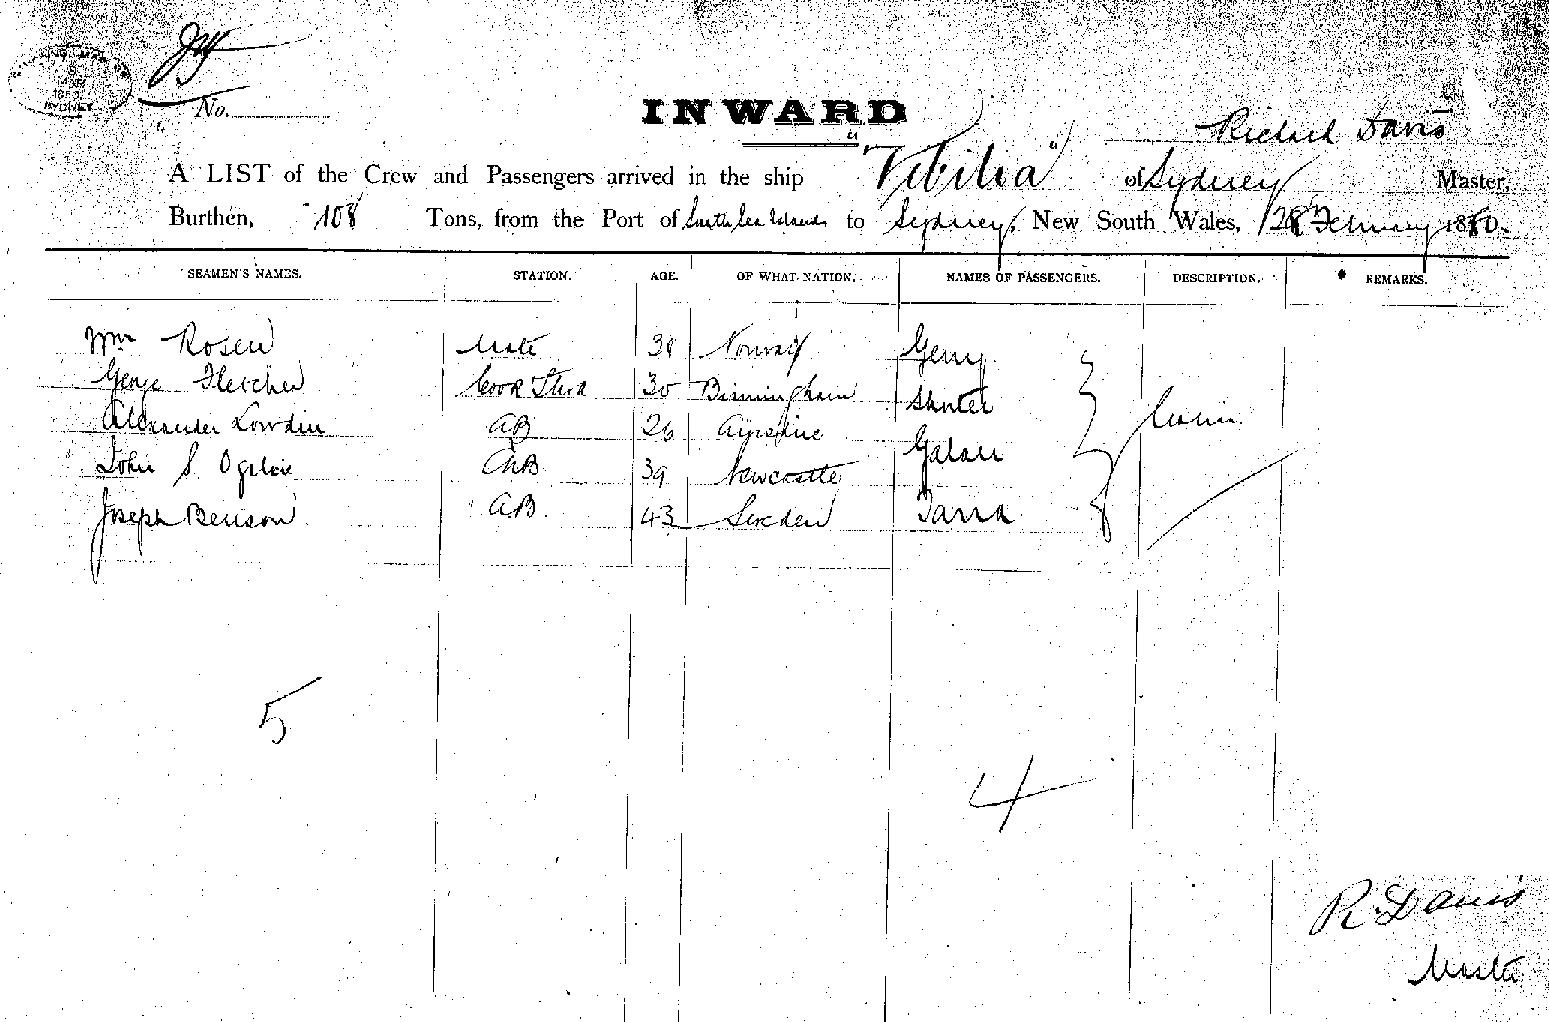 No.
INWARD
Richard Davis
A LIST of the Crew and Passengers arrived in the ship "Vibilia" of Sydney Master,
Burthen, 108 Tons, from the Port of South Sea Islands to Sydney, New South Wales, 28 February 1880.
SEAMEN'S NAMES. STATION. AGE. OF WHAT NATION. NAMES OF PASSENGERS. DESCRIPTION. REMARKS.
Wm Rosen Mate 38 Norway Gerry
George Fletcher Cook Stewd 30 Birmingham
Alexander Lowdin AB 26 Ayrshire
John S. Ogilvie AB 39 Newcastle
Joseph Benson AB. 43 Sweden Tanna
5
4
R. Davis
Master